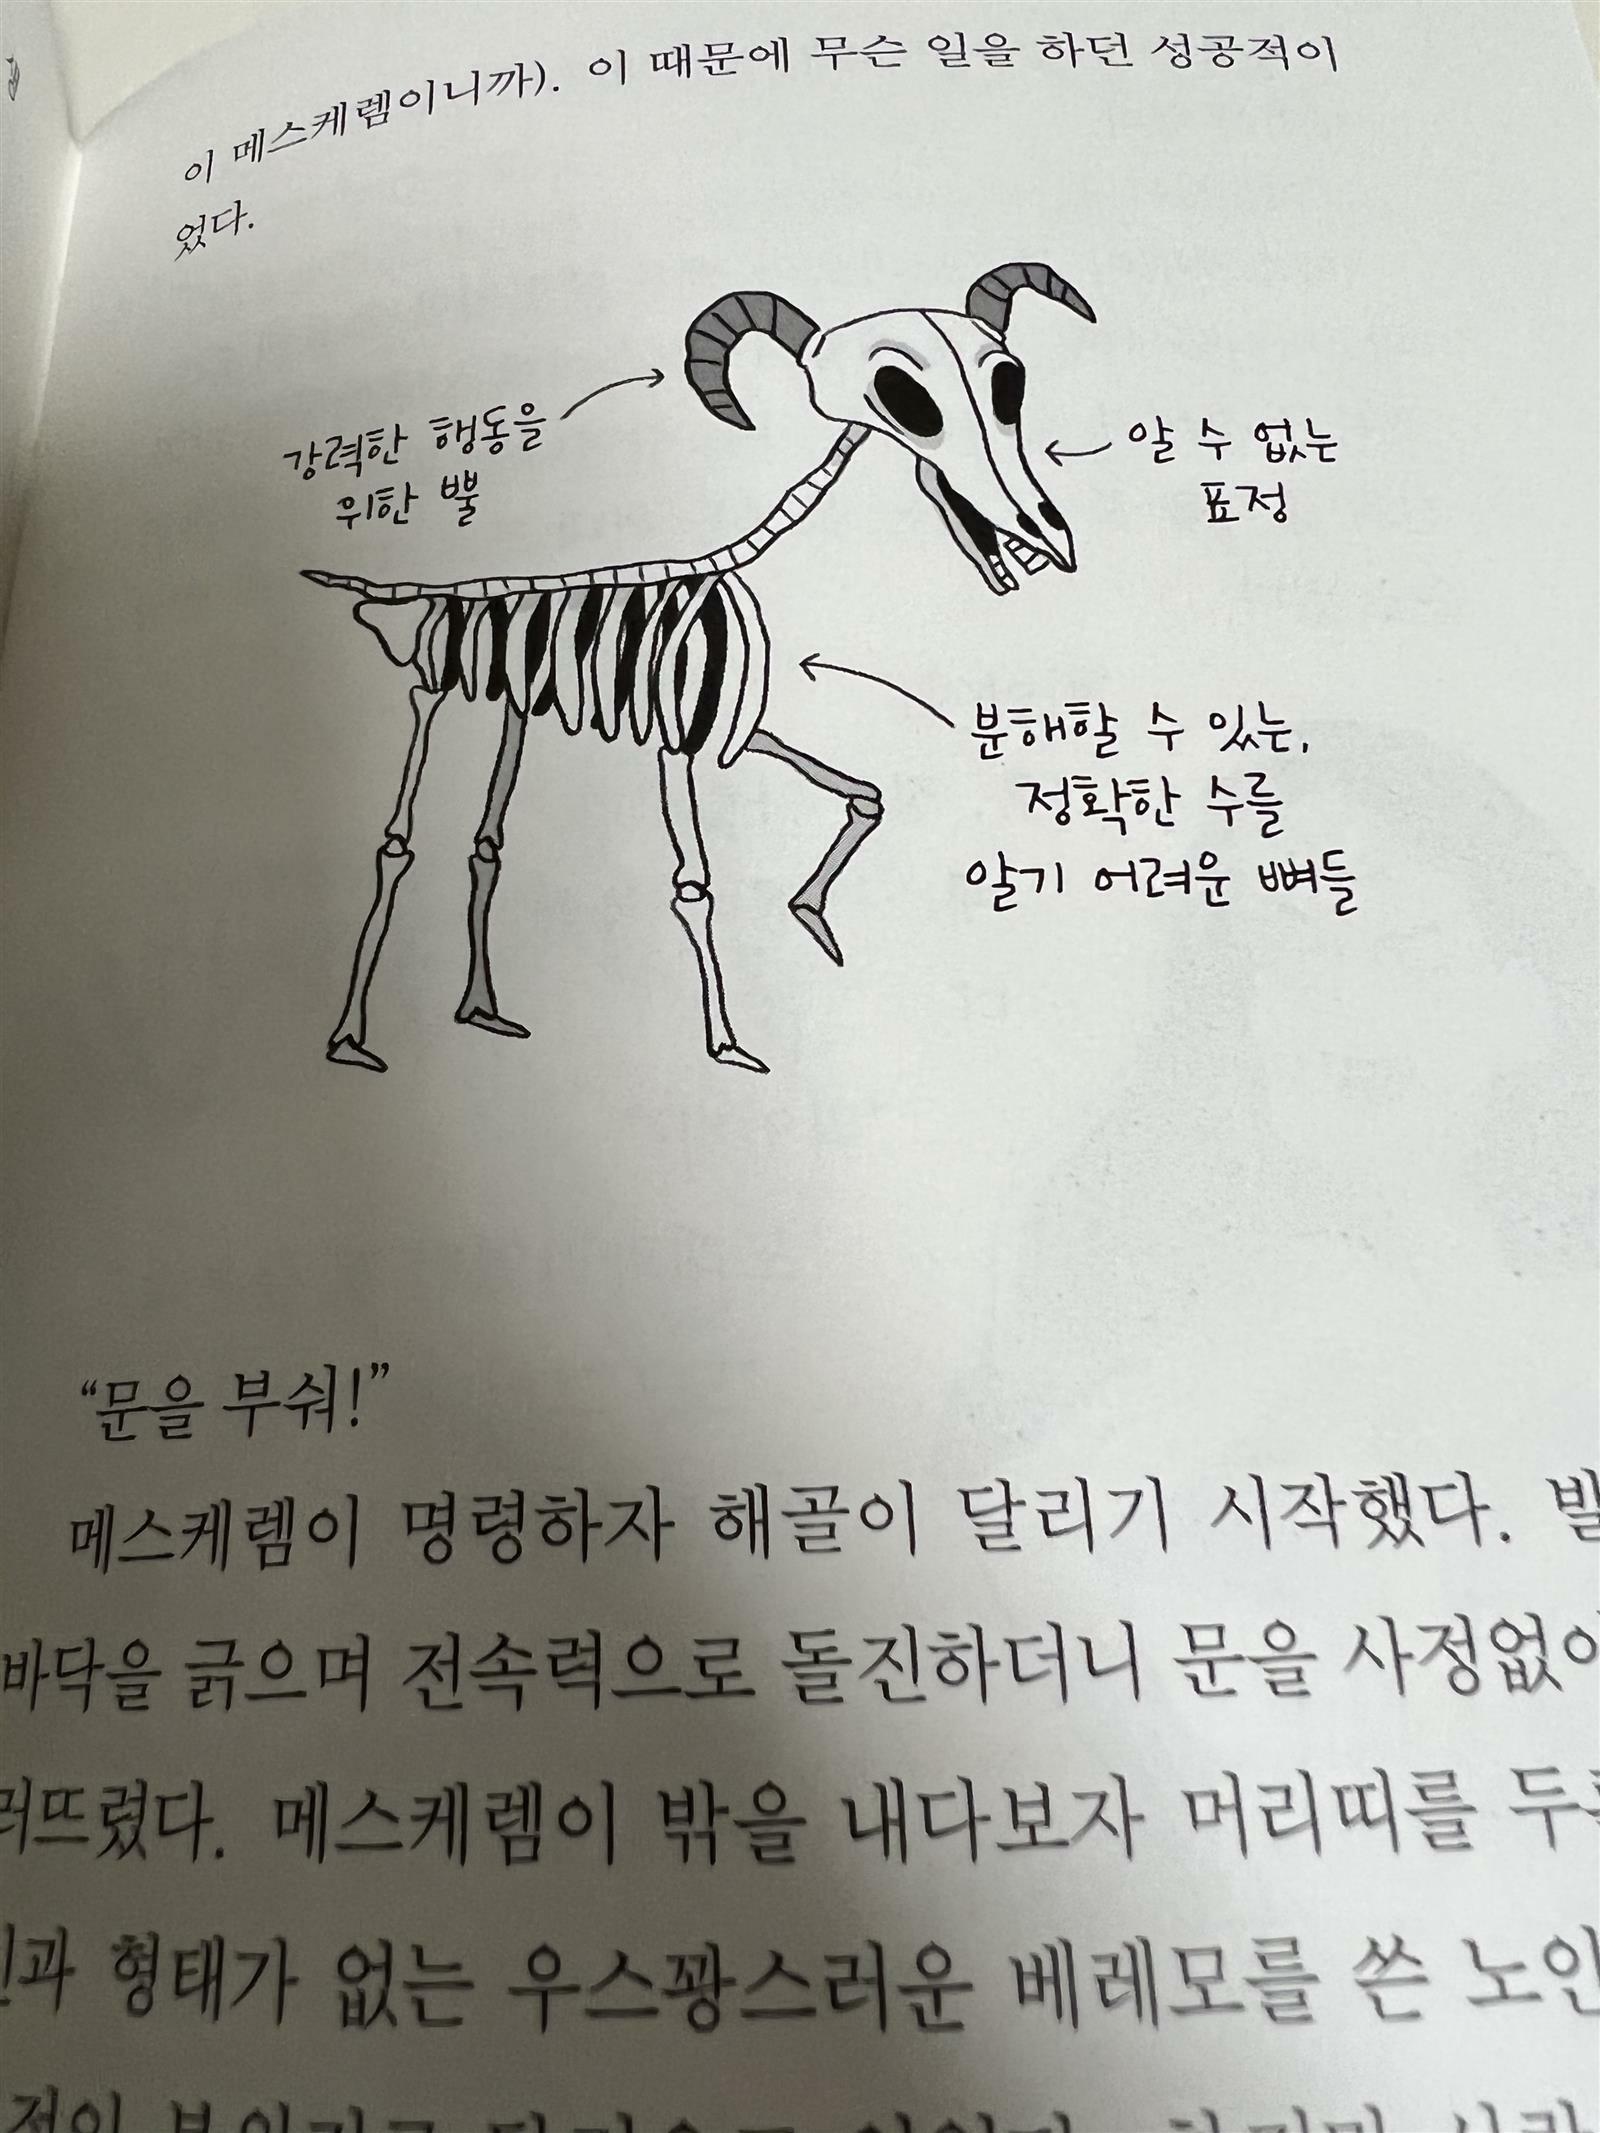 이 메스케렘이니까). 이 때문에 무슨 일을 하던 성공적이
었다.
강력한 행동을
위한 뿔
알 수 없는
표정
분해할 수 있는,
정확한 수를
알기 어려운 뼈들
“문을 부숴!”
메스케렘이 명령하자 해골이 달리기 시작했다.
바닥을 긁으며 전속력으로 돌진하더니 문을
메스케렘이 밖을 내다보자 머리띠를
형태가 없는 우스꽝스러운 베레모를 쓴